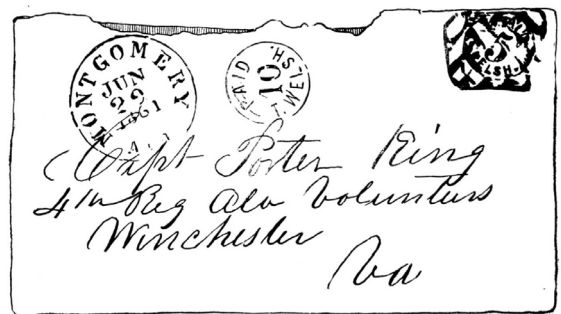 MONTGOMERY
JUN
29
1861
PAID
10
WELSH.
5
WELSH
Capt Porter King
4th Reg Ala Volunteers
Winchester
Va